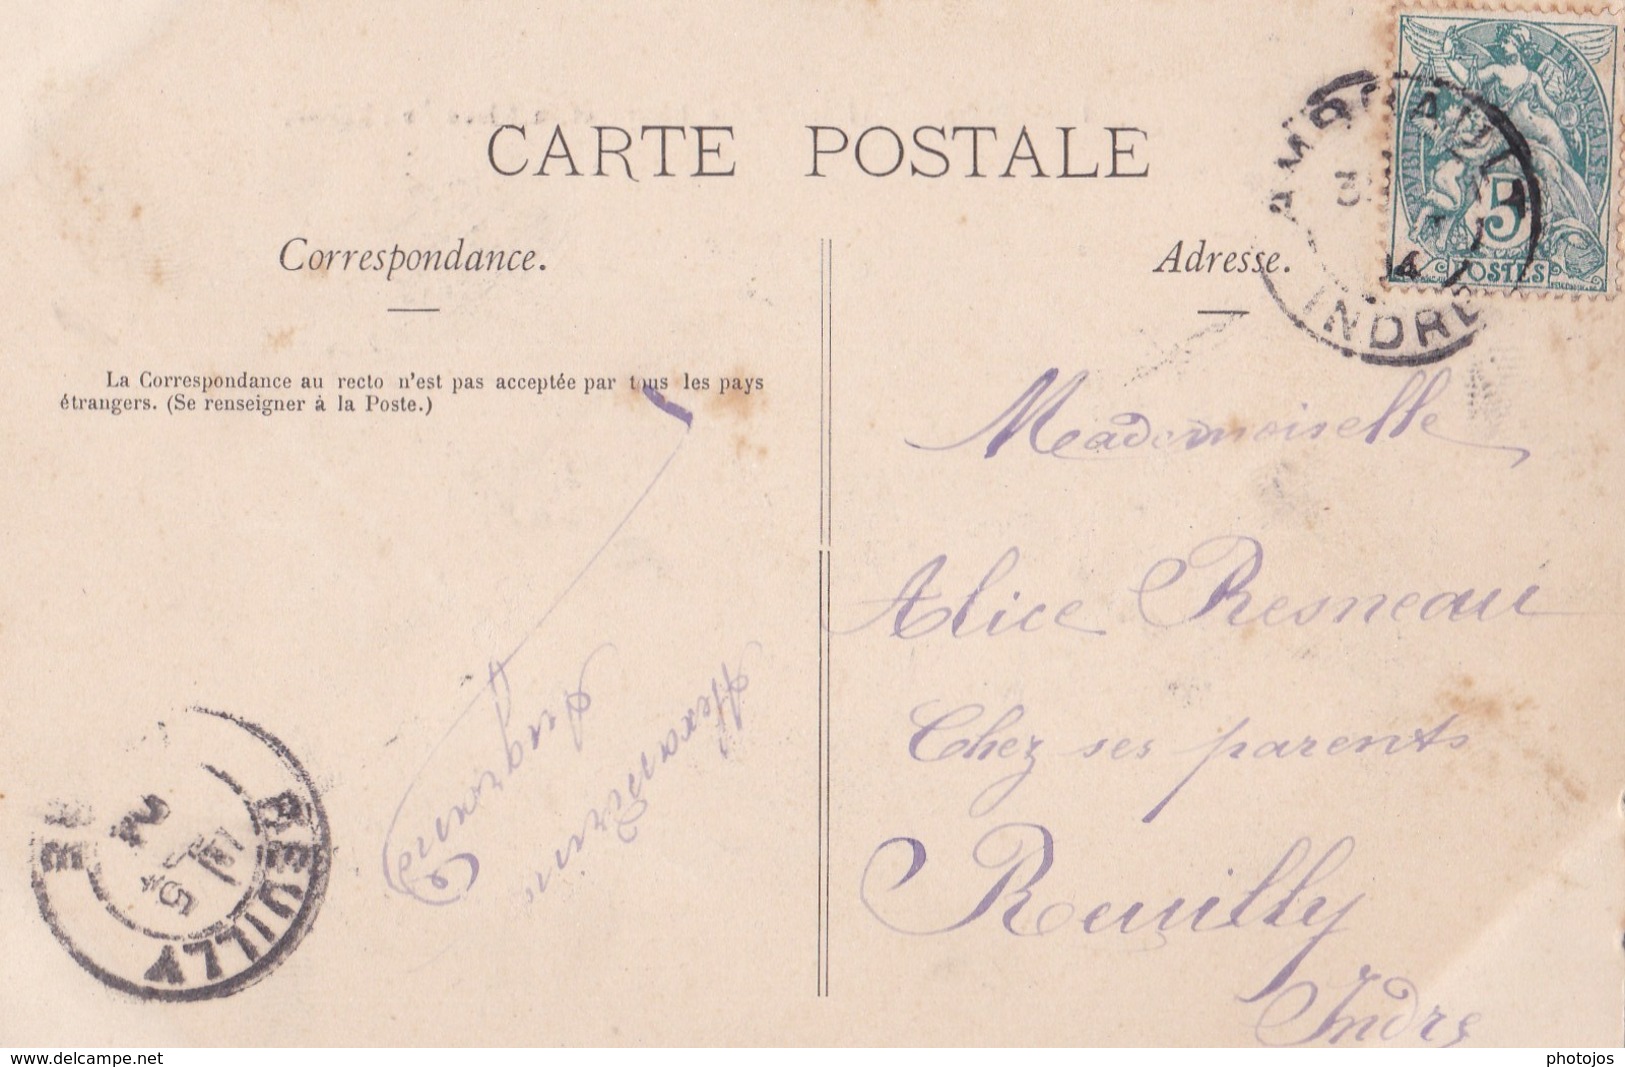 CARTE POSTALE
Correspondance.
Adresse.
La Correspondance au recto n'est pas acceptée par tous les pays
étrangers. (Se renseigner à la Poste.)
RÉPUBLIQUE FRANÇAISE
5
POSTES
INDRE
Mademoiselle
Alice Resneau
Chez ses parents
Reuilly
Indre
Alexandrine
REUILLY
www.delcampe.net
photojos